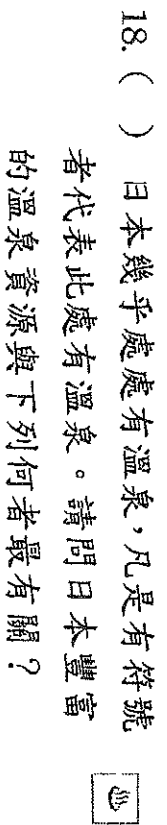 18. (　) 日本幾乎處處有溫泉，凡是有符號♨
者代表此處有溫泉。請問日本豐富
的溫泉資源與下列何者最有關？